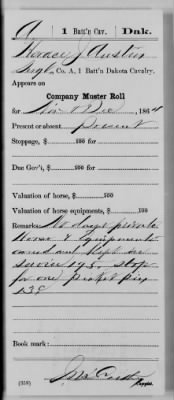 A | 1 Batt'n Cav. | Dak.
Horace J Austin
Sergt, Co. A, 1 Batt'n Dakota Cavalry.
Appears on
Company Muster Roll
for Nov & Dec, 1864
Present or absent Present
Stoppage, $ 100 for
Due Gov't, $ 100 for
Valuation of horse, $ 100
Valuation of horse equipments, $ 100
Remarks: days private
Horse & Equipments
owned and kept in
service stop
for one Picket Pin
Book mark:
(358) Copyist.